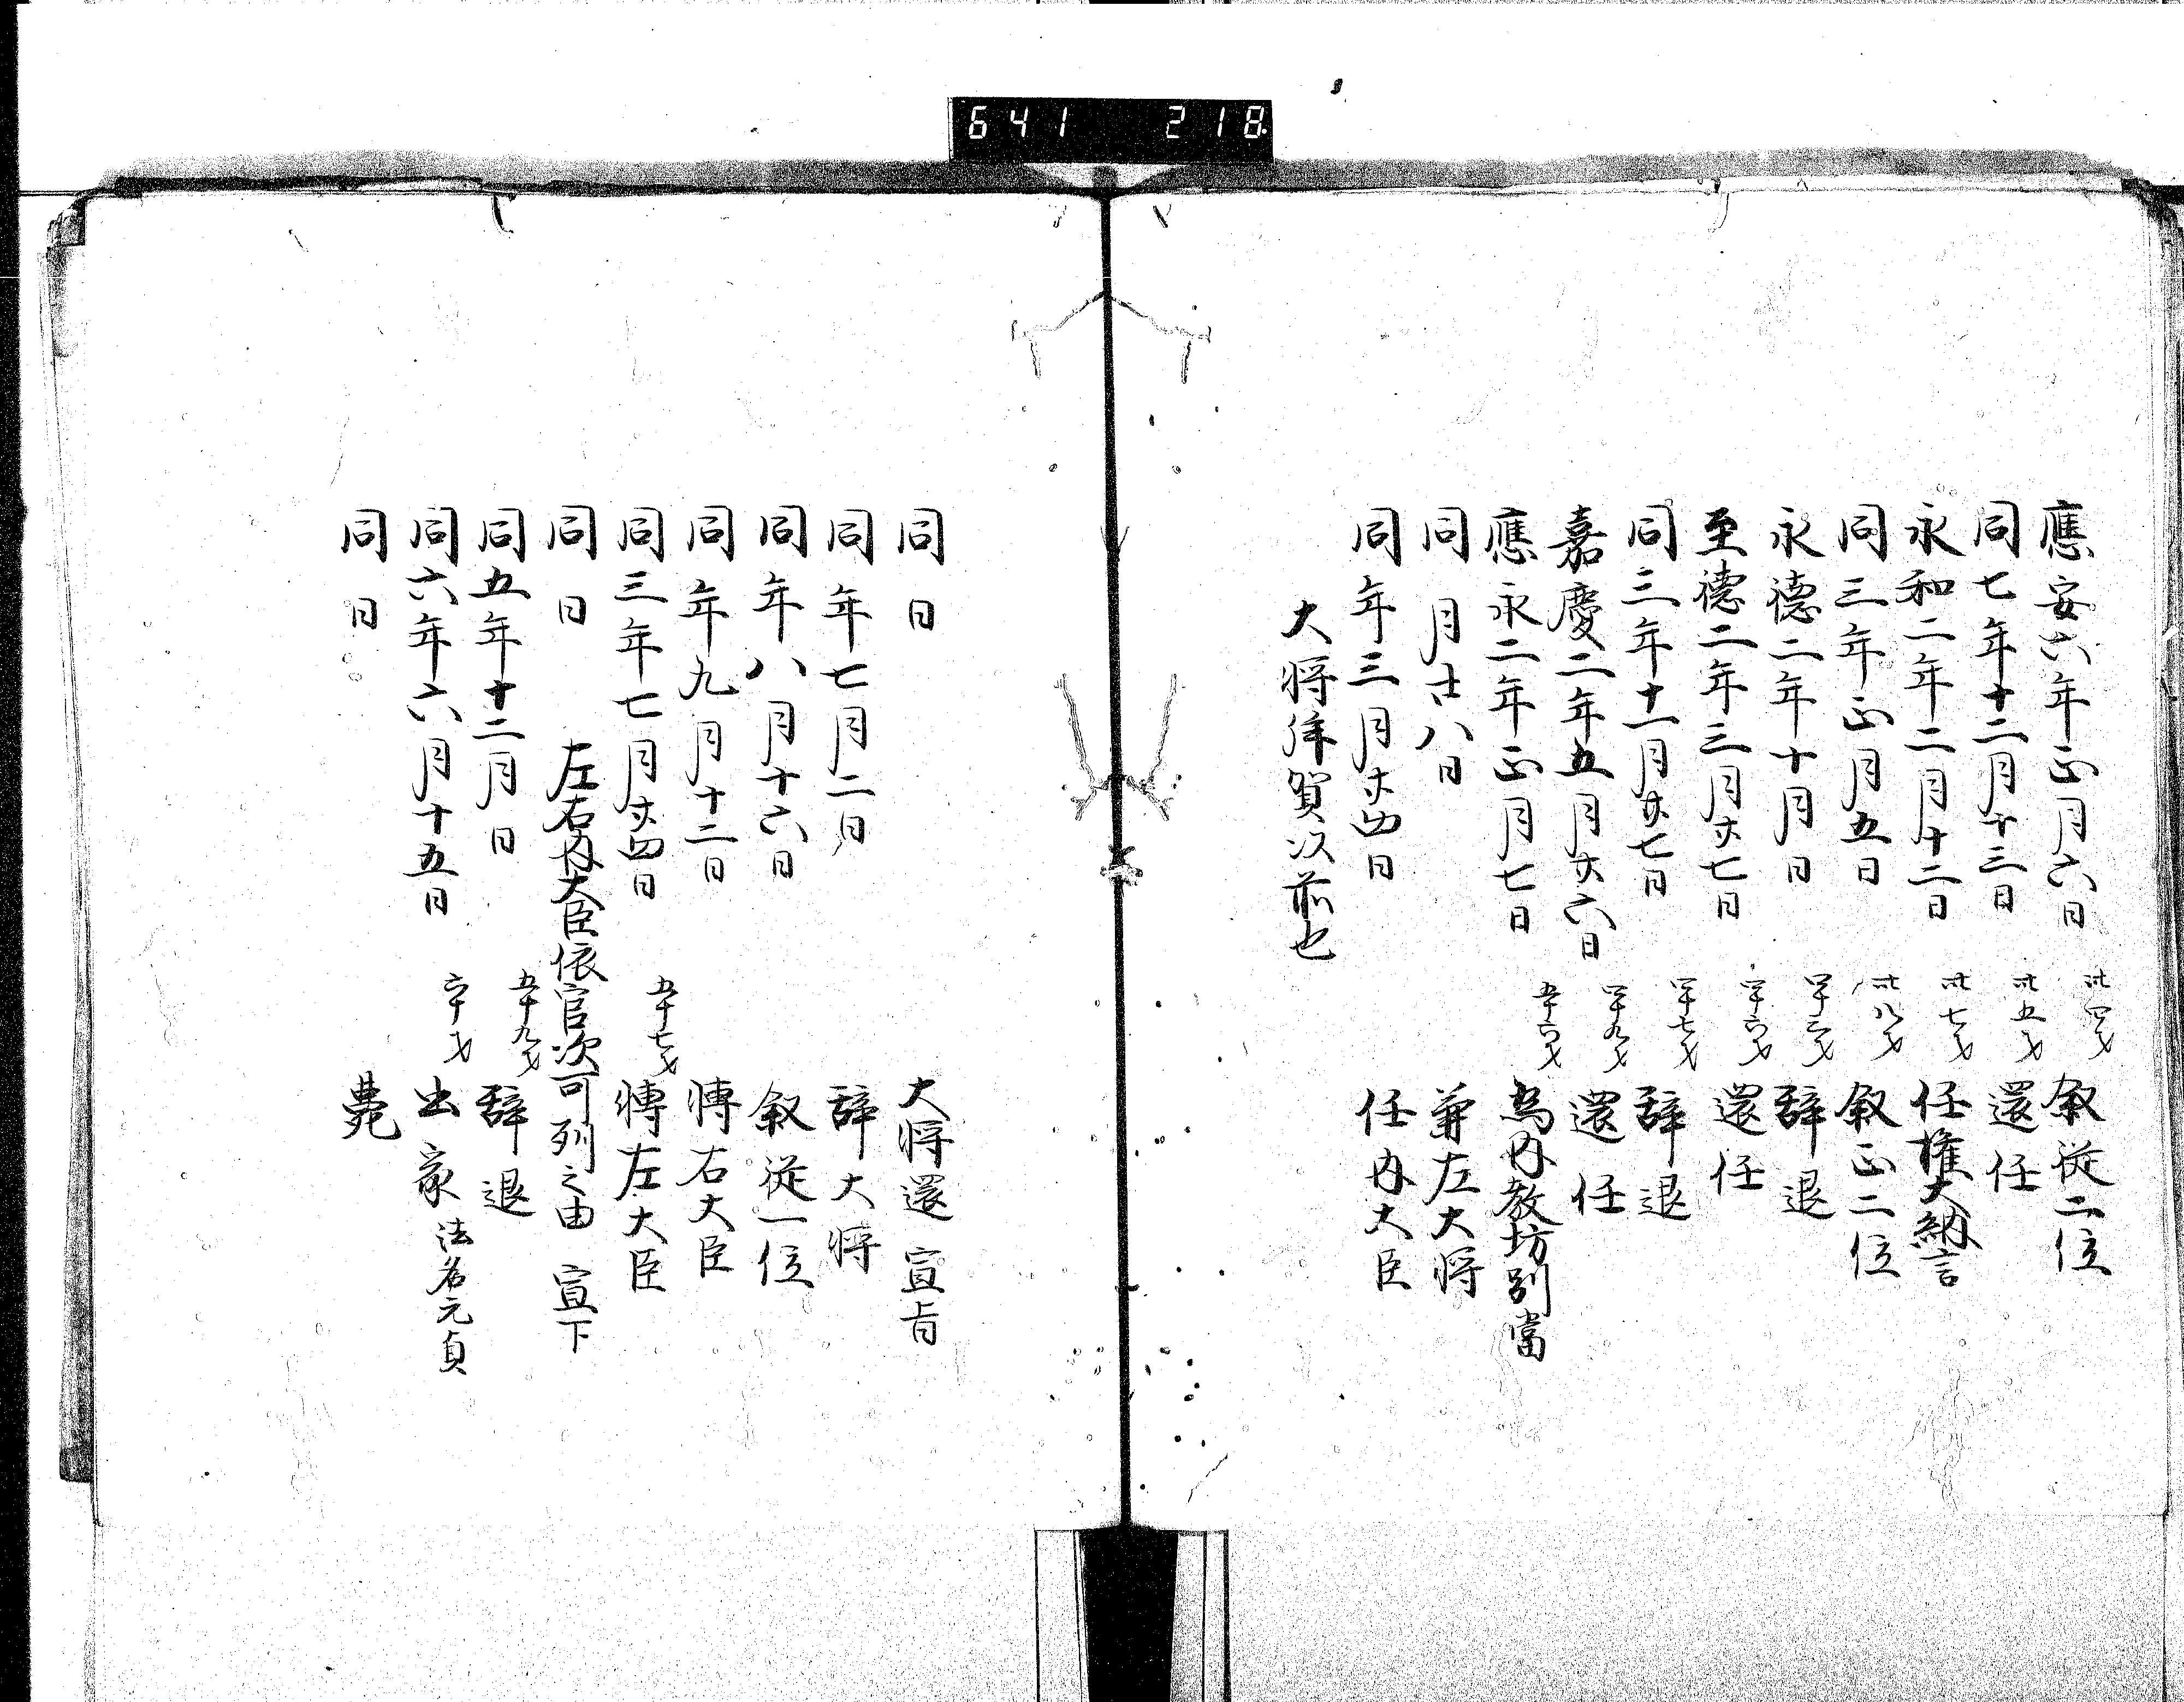 641 218
應安六年正月六日 卅四才 叙従二位
同七年十二月十三日 卅五才 還任
永和二年二月十二日 卅七才 任権大納言
同三年正月五日 卅八才 叙正二位
永徳二年十月日 四十三才 辞退
至徳二年三月廿七日 四十六才 還任
同三年十一月廿七日 四十七才 辞退
嘉慶二年五月廿六日 四十九才 還任
應永二年正月七日 五十六才 為内教坊別當
同月廿八日 兼左大将
同年三月廿四日 任内大臣
大将拝賀以前也
同日 大将還宣旨
同年七月二日 辞大将
同年八月十六日 叙従一位
同年九月十二日 轉右大臣
同三年七月廿四日 五十七才 轉左大臣
同日 左右内大臣依官次可列之由 宣下
同五年十二月日 五十九才 辞退
同六年六月十五日 六十才 出家 法名元貞
同日 薨